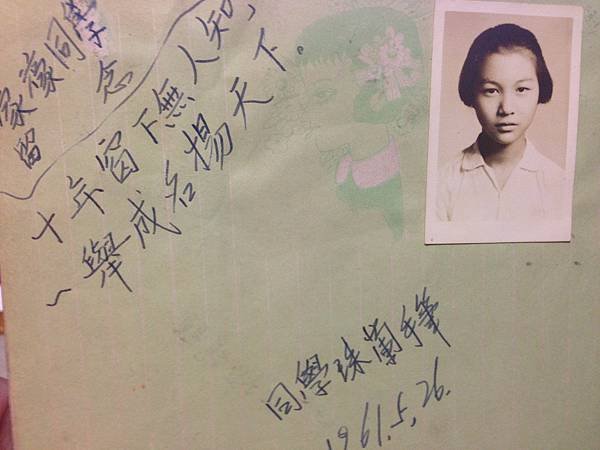 家濠同學
留念
十年窗下無人知,
一舉成名揚天下。
同學珠蘭手筆
1961.5.26.